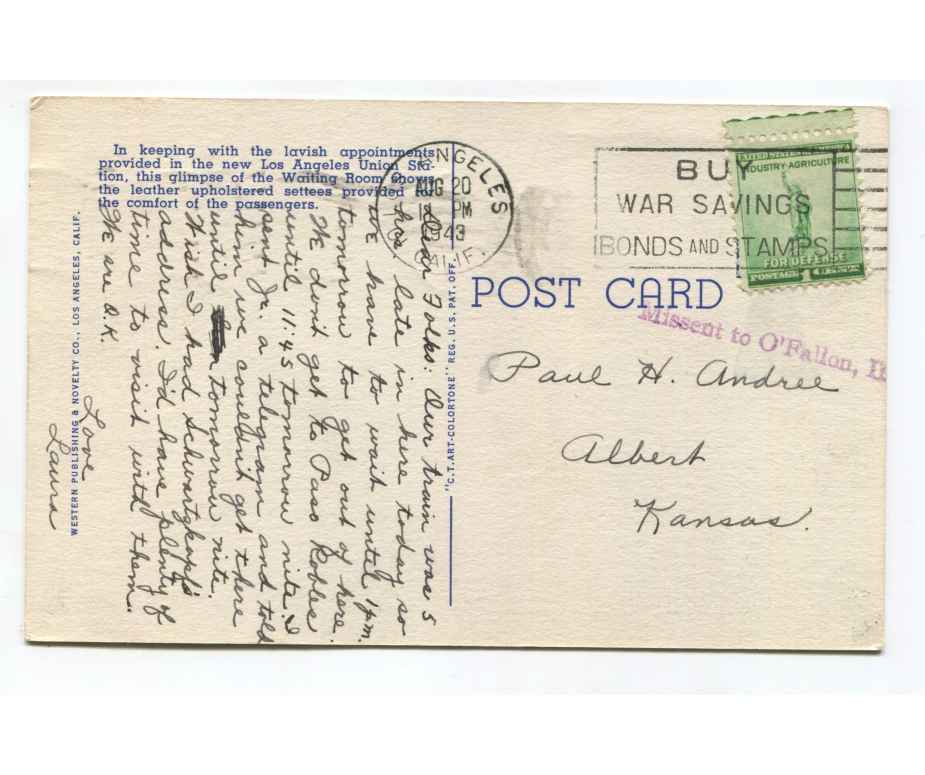 In keeping with the lavish appointments
provided in the new Los Angeles Union Sta-
tion, this glimpse of the Waiting Room shows
the leather upholstered settees provided for
the comfort of the passengers.
Dear Folks: Our train was 5
hrs. late in here today so
we have to wait until 1 p.m.
tomorrow to get out of here.
We don't get to Paso Robles
until 11:45 tomorrow nite. I
sent Jr. a telegram and told
him we couldn't get there
until tomorrow nite.
Wish I had Schwartzkopf's
address, I'd have plenty of
time to visit with them.
We are O.K.
Love
Laura
WESTERN PUBLISHING & NOVELTY CO., LOS ANGELES, CALIF.
"C.T. ART-COLORTONE" REG. U.S. PAT. OFF.
ANGELES
AUG 20
PM
1943
CALIF.
BUY
WAR SAVINGS
BONDS AND STAMPS
UNITED STATES OF AMERICA
INDUSTRY-AGRICULTURE
FOR DEFENSE
POSTAGE 1 CENT
POST CARD
Missent to O'Fallon, Il
Paul H. Andree
Albert
Kansas.